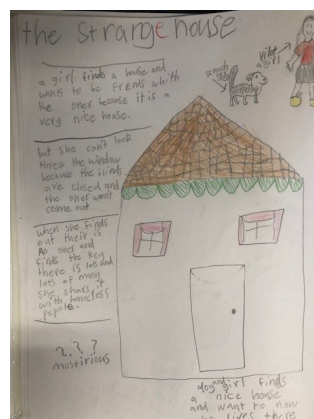 the strange house
a girl finds a house and
wants to be frends whith
the oner because it is a
very nice house.
but she can't look
threw the window
because the blinds
are closed and
the oner wont
come out
when she finds
out their is
no oner and
finds the key
there is lots and
lots of money
she shars it
with homeless
pepole.
? ? ?
mostirious
a girl
dog and girl finds
a nice house
and want to now
who lives there